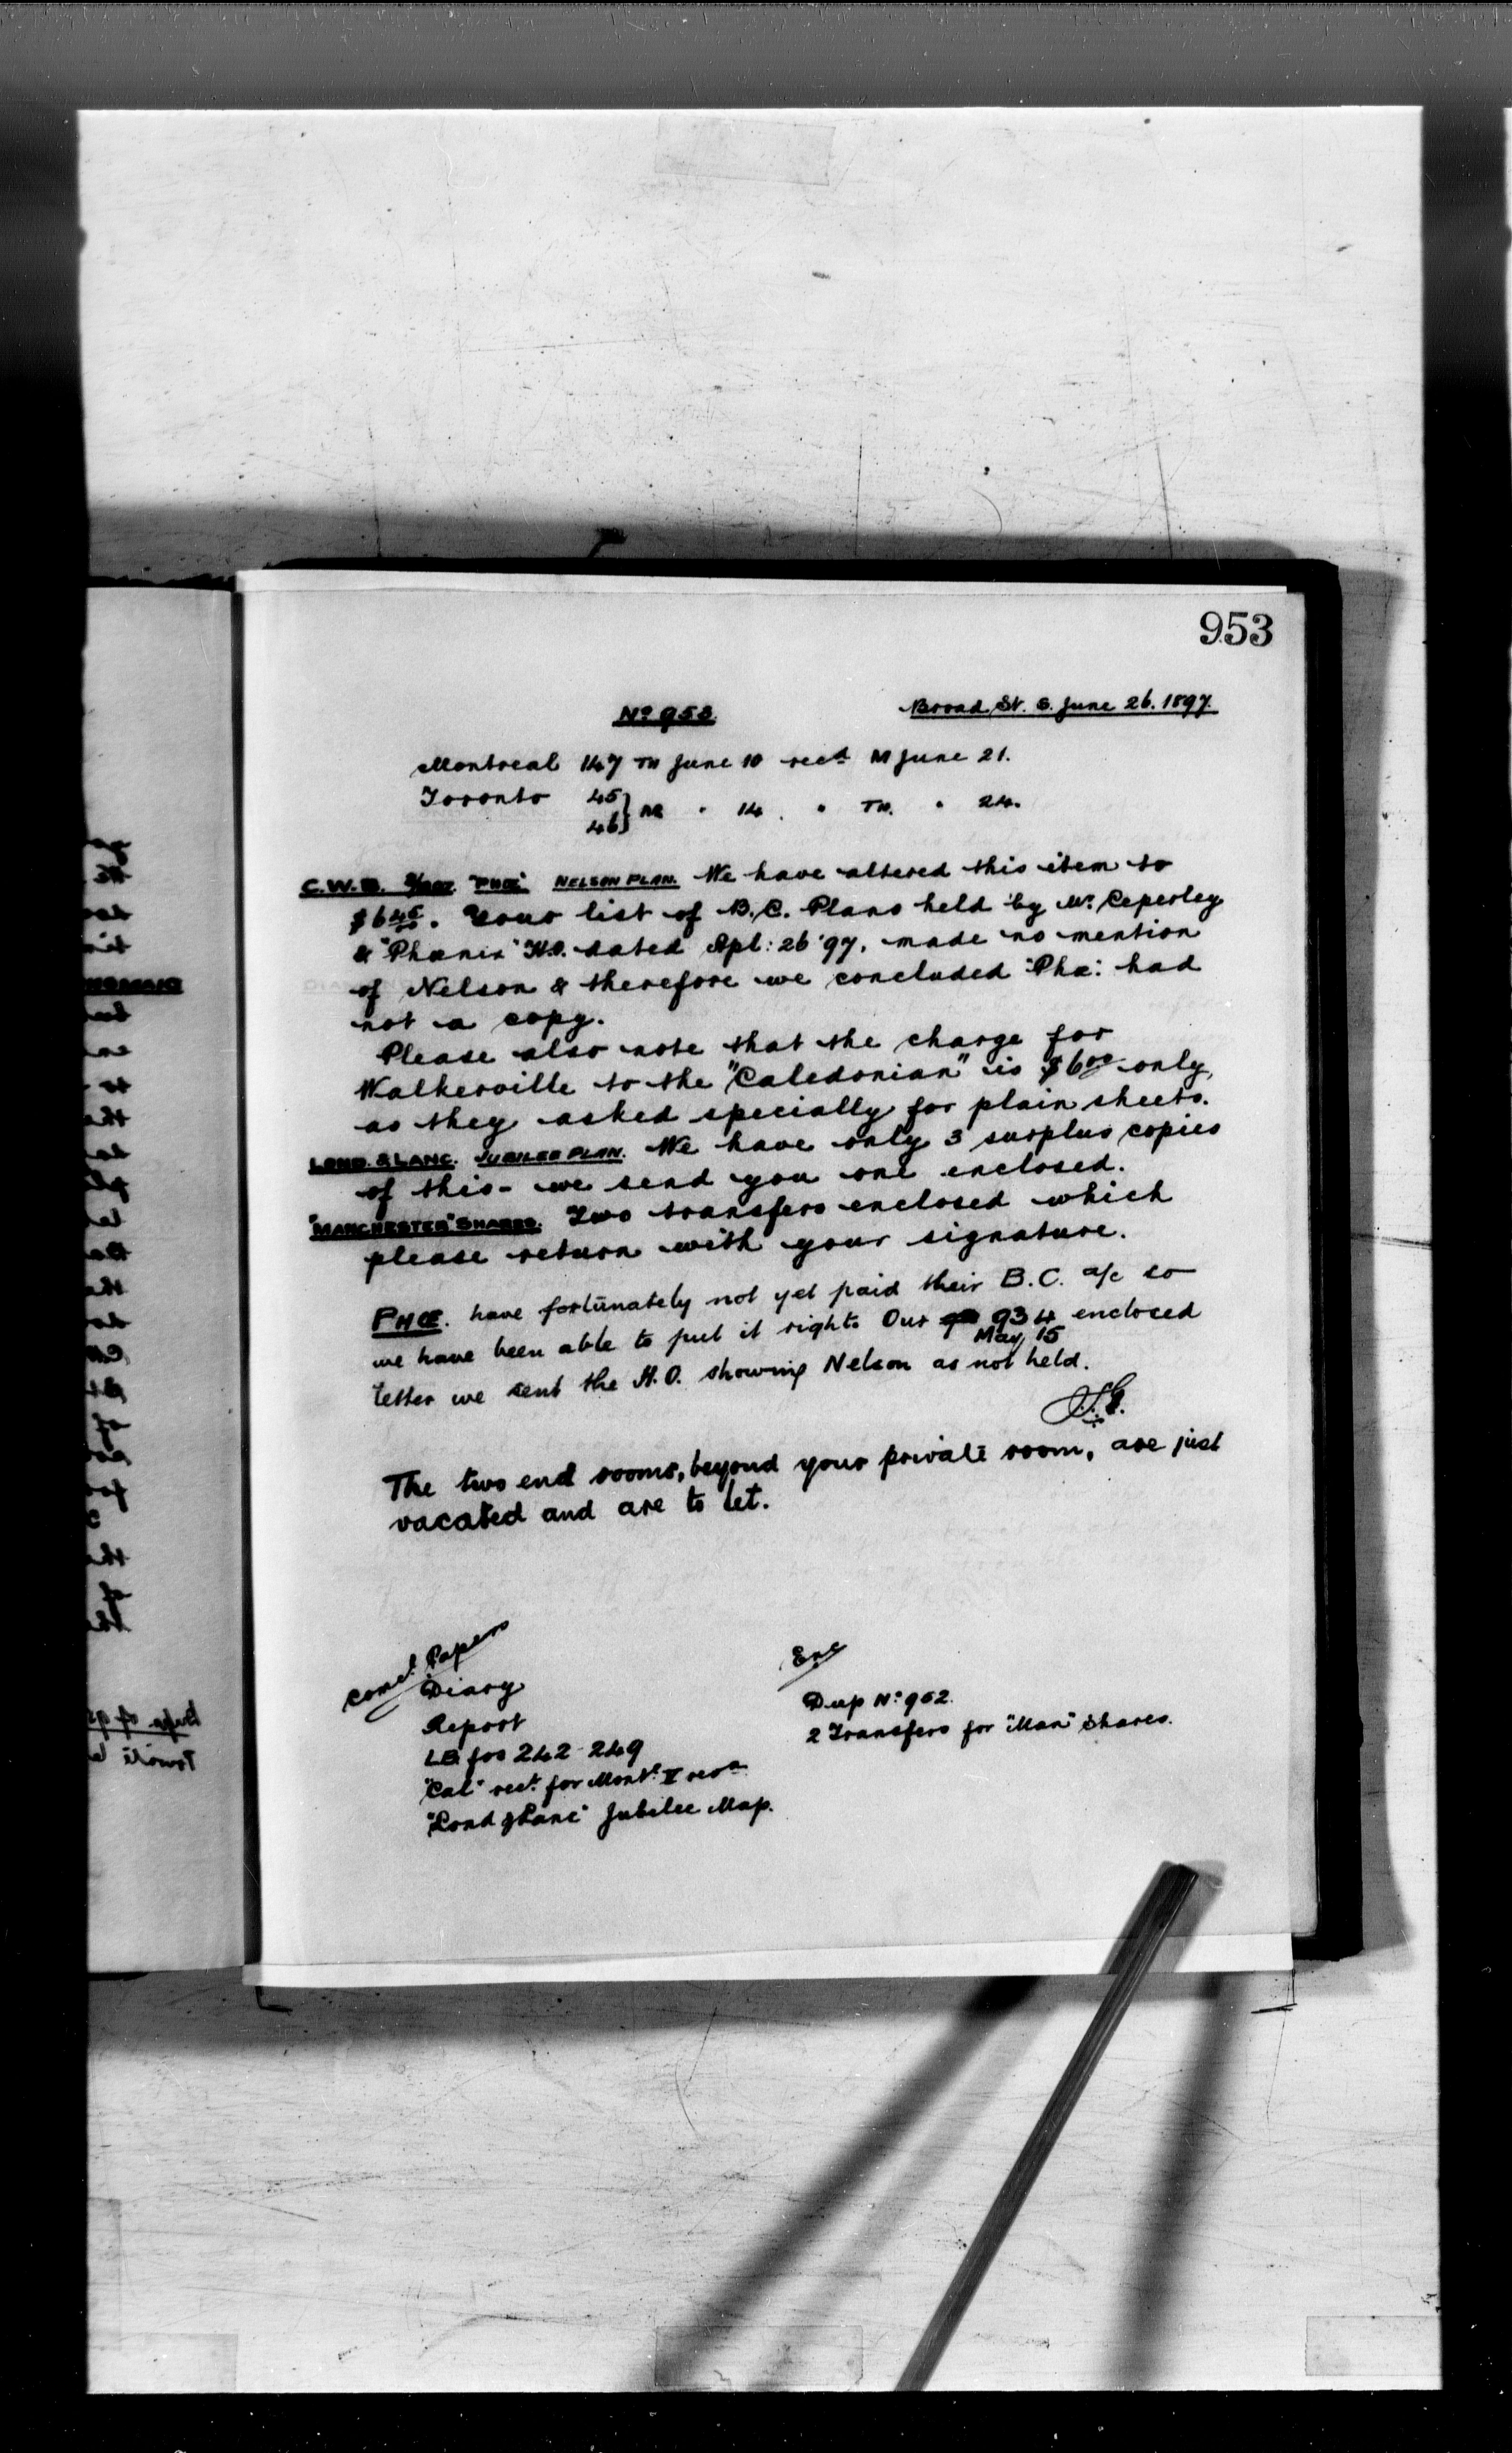 953
No 953. Broad St. S. June 26. 1897.
Montreal 147 TH June 10 recd M June 21.
Toronto 45 } M " 14. " TH. " 24.
46
C.W.B. "PHŒ" NELSON PLAN. We have altered this item to
$6 45. Your list of B.C. Plans held by Mr. Ceperley
& "Phœnix" H.O. dated Apl: 26 '97, made no mention
of Nelson & therefore we concluded "Phœ: had
not a copy.
Please also note that the charge for
Walkerville to the "Caledonian" is $6 00 only,
as they asked specially for plain sheets.
LOND. & LANC. JUBILEE PLAN. We have only 3 surplus copies
of this - we send you one enclosed.
"MANCHESTER" SHARES. Two transfers enclosed which
please return with your signature.
PHŒ. have fortunately not yet paid their B.C. a/c so
we have been able to put it right. Our 934 enclosed
May 15
letter we sent the H.O. showing Nelson as not held.
The two end rooms, beyond your private room, are just
vacated and are to let.
Comd. Papers
Diary
Report
LB fos 242-249
"Cal" rect. for Mont. V revn
"Lond & Lanc" Jubilee Map.
Enc
Dup No. 952.
2 Transfers for "Man" Shares.